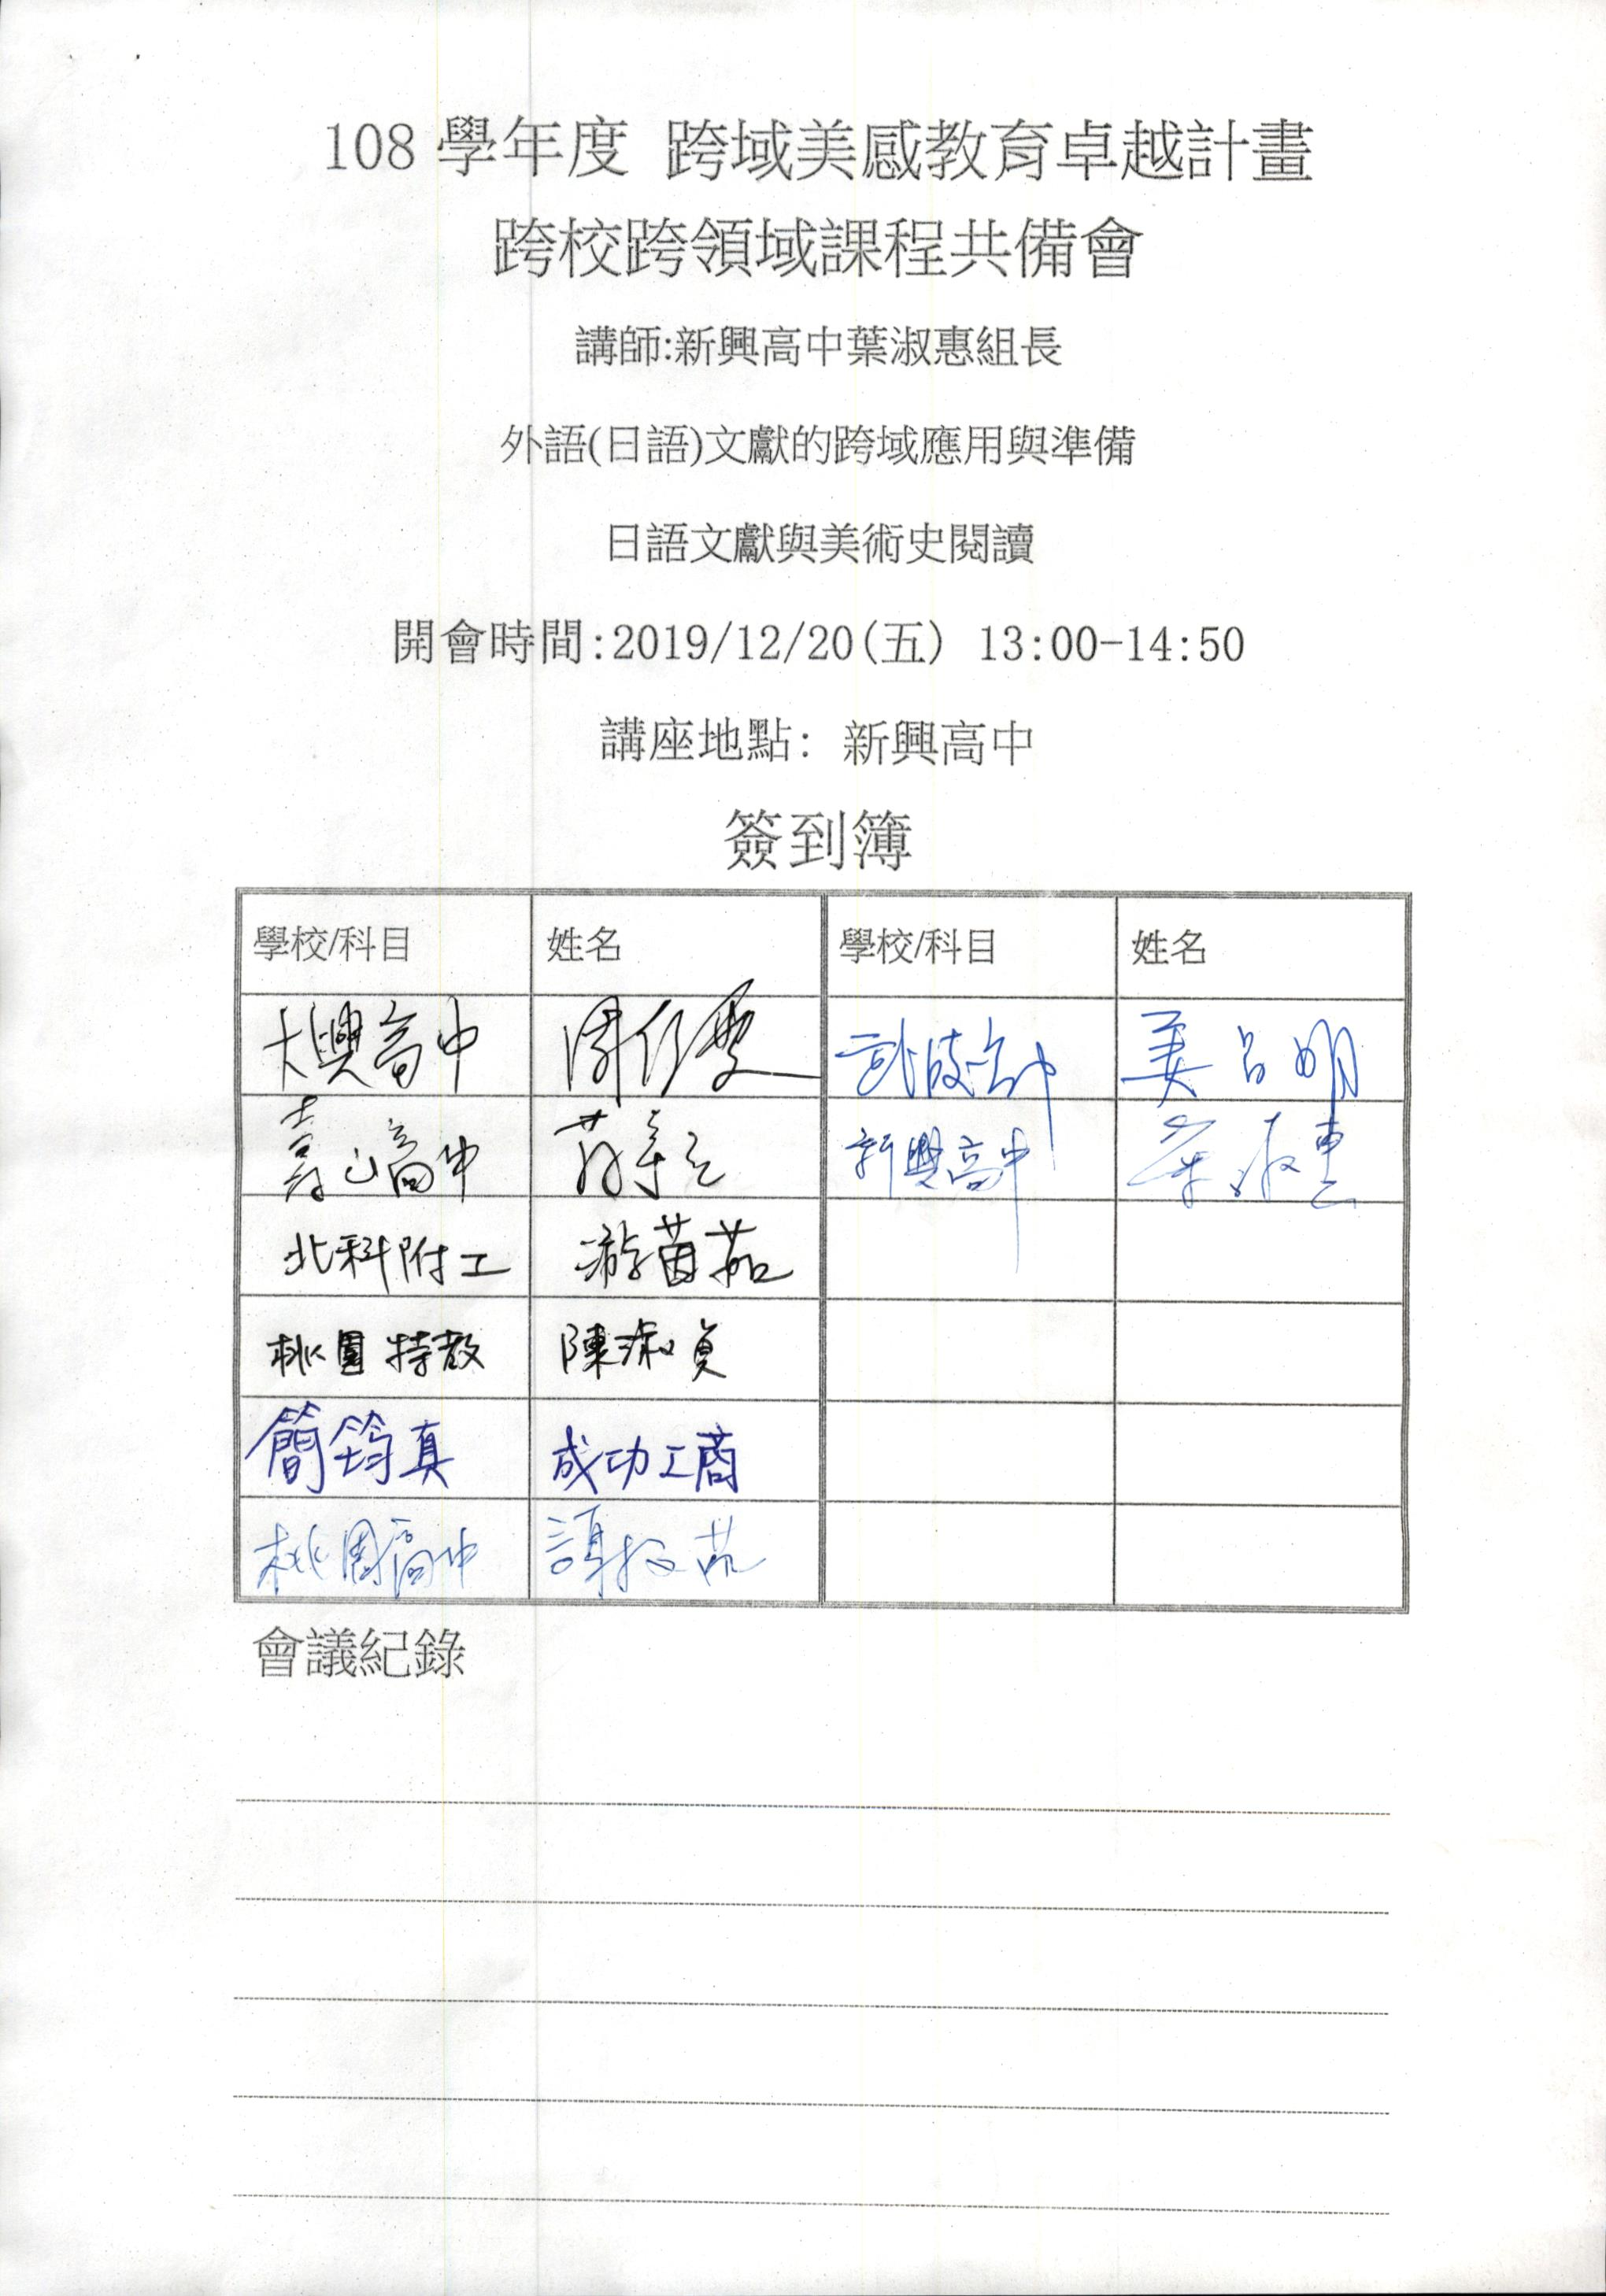 108 學年度 跨域美感教育卓越計畫
跨校跨領域課程共備會
講師:新興高中葉淑惠組長
外語(日語)文獻的跨域應用與準備
日語文獻與美術史閱讀
開會時間:2019/12/20(五) 13:00-14:50
講座地點: 新興高中
簽到簿
學校/科目 姓名 學校/科目 姓名
大興高中 武陵高中 姜呂明
壽山高中 新興高中 葉淑惠
北科附工 游苗茹
桃園特教 陳淑貞
簡筠真 成功工商
桃園高中
會議紀錄